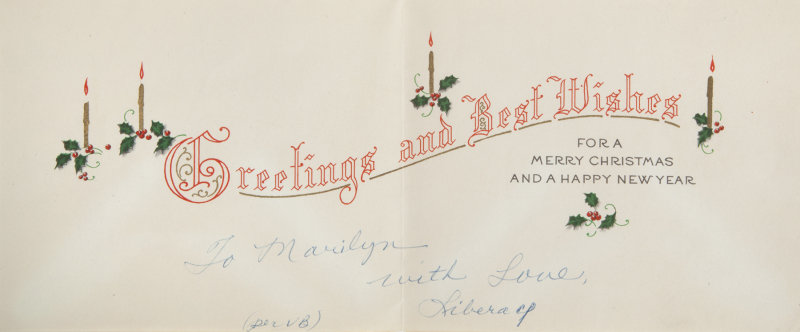 Greetings and Best Wishes
FOR A
MERRY CHRISTMAS
AND A HAPPY NEW YEAR
To Marilyn
with Love,
Liberace
(per VB)